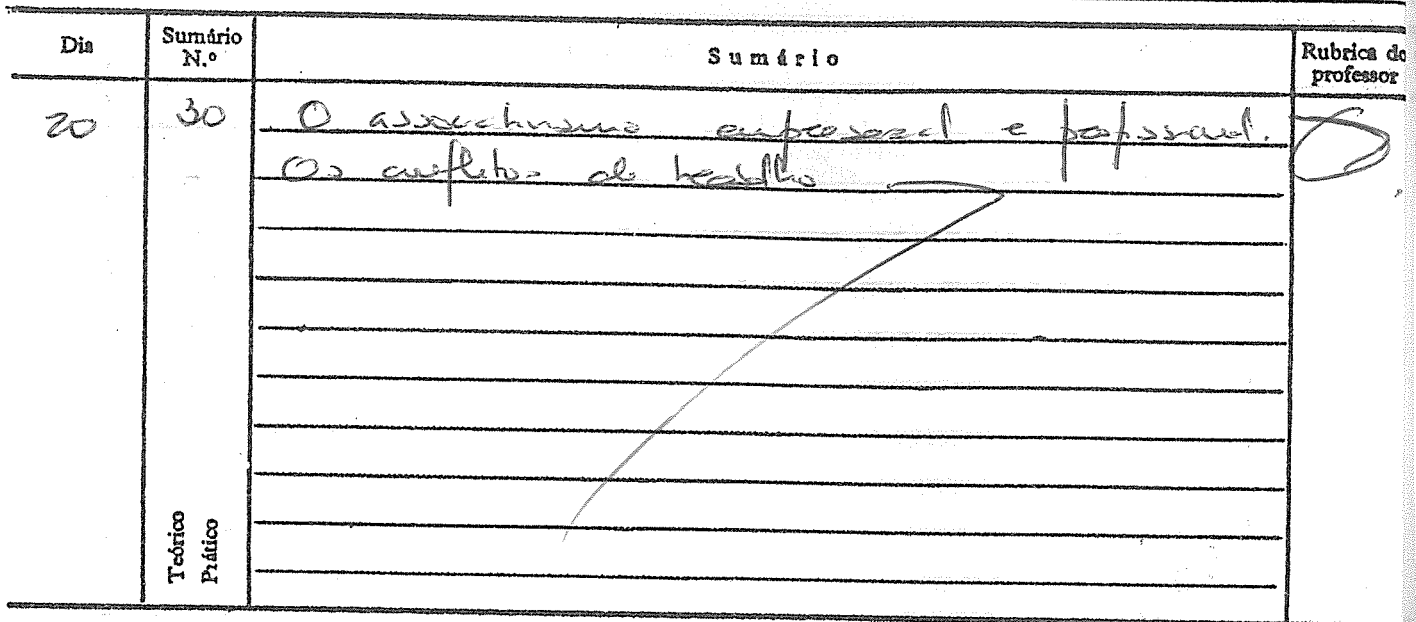 Dia
Sumário N.º
Sumário
Rubrica do professor
20
30
O associativismo empresarial e profissional.
Os conflitos de trabalho
Teórico
Prático